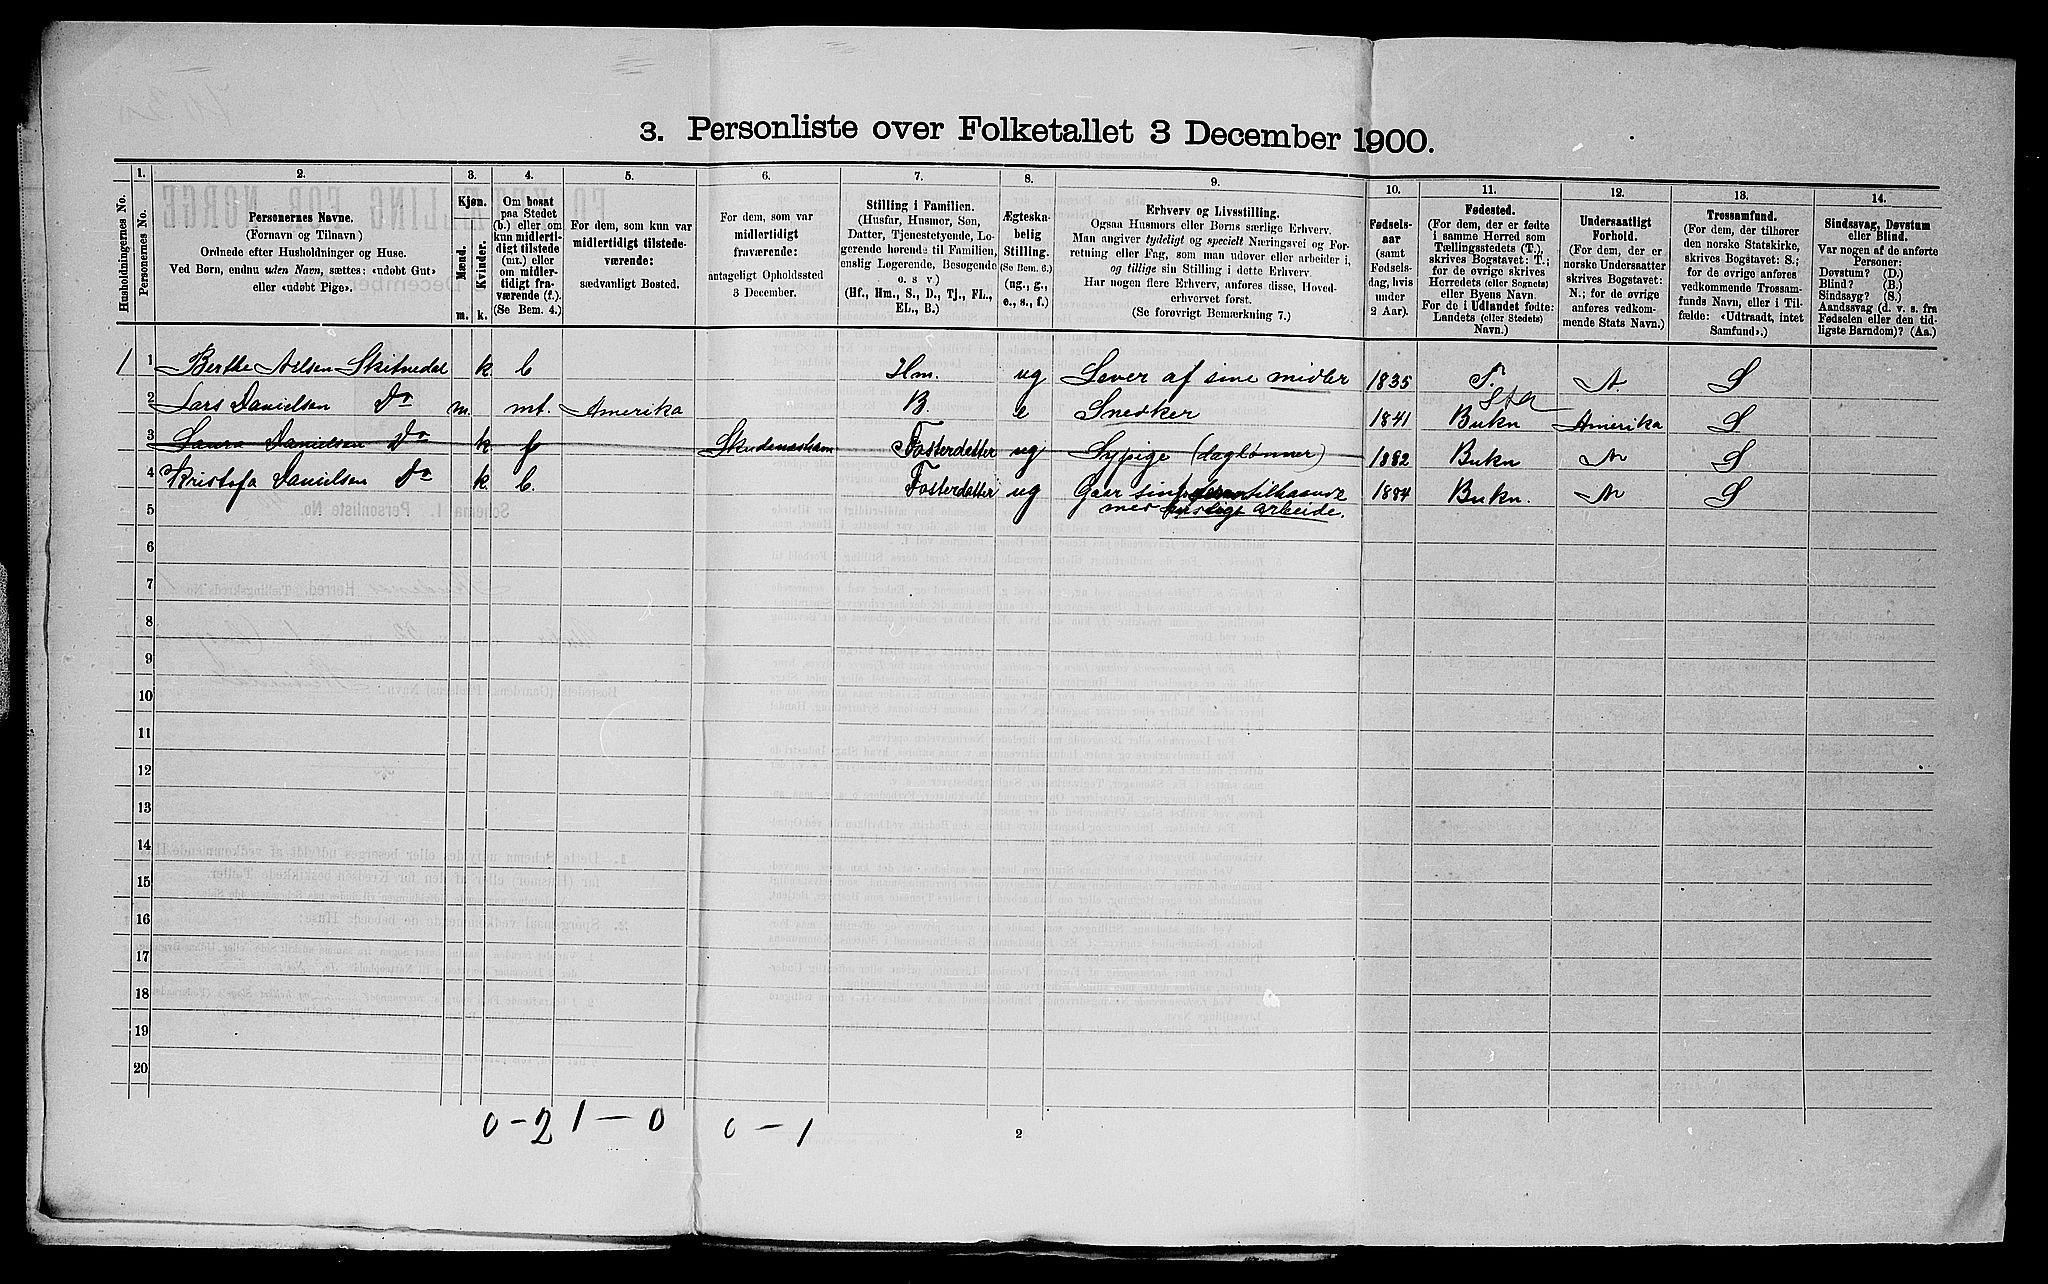 3. Personliste over Folketallet 3 December 1900.
Husholdningernes No.
1. Personernes No.
2. Personernes Navne.
(Fornavn og Tilnavn)
Ordnede efter Husholdninger og Huse.
Ved Børn, endnu uden Navn, sættes: «udøbt Gut»
eller «udøbt Pige».
3. Kjøn.
Mænd. Kvinder.
m. k.
4. Om bosat
paa Stedet
(b.) eller om
kun midlerti-
digt tilstede
(mt.) eller
om midler-
tidigt fra-
værende (f.).
(Se Bem. 4.)
5. For dem, som kun var
midlertidigt tilstede-
værende:
sædvanligt Bosted.
6. For dem, som var
midlertidigt
fraværende:
antageligt Opholdssted
3 December.
7. Stilling i Familien.
(Husfar, Husmor, Søn,
Datter, Tjenestetyende, Lo-
gerende hørende til Familien,
enslig Logerende, Besøgende
o. s v.)
(Hf., Hm., S., D., Tj., FL.,
EL., B.)
8. Ægteska-
belig
Stilling.
(Se Bem. 6.)
(ug., g.,
e., s., f.)
9. Erhverv og Livsstilling.
Ogsaa Husmors eller Børns særlige Erhverv.
Man angiver tydeligt og specielt Næringsvei og For-
retning eller Fag, som man udover eller arbeider i,
og tillige sin Stilling i dette Erhverv.
Har nogen flere Erhverv, anføres disse, Hoved-
erhvervet først.
(Se forøvrigt Bemærkning 7.)
10. Fødsels-
aar
(samt
Fødsels-
dag, hvis
under
2 Aar).
11. Fødested.
(For dem, der er fødte
i samme Herred som
Tællingsstedets (T.),
skrives Bogstavet: T.;
for de øvrige skrives
Herredets (eller Sognets)
eller Byens Navn.
For de i Udlandet fødte:
Landets (eller Stedets)
Navn.)
12. Undersaatligt
Forhold.
(For dem, der er
norske Undersaatter
skrives Bogstavet:
N.; for de øvrige
anføres vedkom-
mende Stats Navn.)
13. Trossamfund.
(For dem, der tilhører
den norske Statskirke,
skrives Bogstavet: S.;
for de øvrige anføres
vedkommende Trossam-
funds Navn, eller i Til-
fælde: «Udtraadt, intet
Samfund».)
14. Sindssvag, Døvstum
eller Blind.
Var nogen af de anførte
Personer:
Døvstum? (D.)
Blind? (B.)
Sindssyg? (S.)
Aandssvag (d. v. s. fra
Fødselen eller den tid-
ligste Barndom)? (Aa.)
1 1 Berthe Aslsen Skitnedal k b Hm. ug Lever af sine midler 1835 T. N. S
2 Lars Danielsen Do m. mt. Amerika B. e Snedker 1841 Bukn Amerika S
3 Laura Danielsen Do k f Skudeneshavn Fosterdatter ug Sypige (daglønner) 1882 Bukn N S
4 Kristofa Danielsen Do k b. Fosterdatter ug Gaar sin tilhaande 1884 Bukn. N S
5 med huslige arbeide.
6
7
8
9
10
11
12
13
14
15
16
17
18
19
20
0 - 2 1 - 0 0 - 1
2